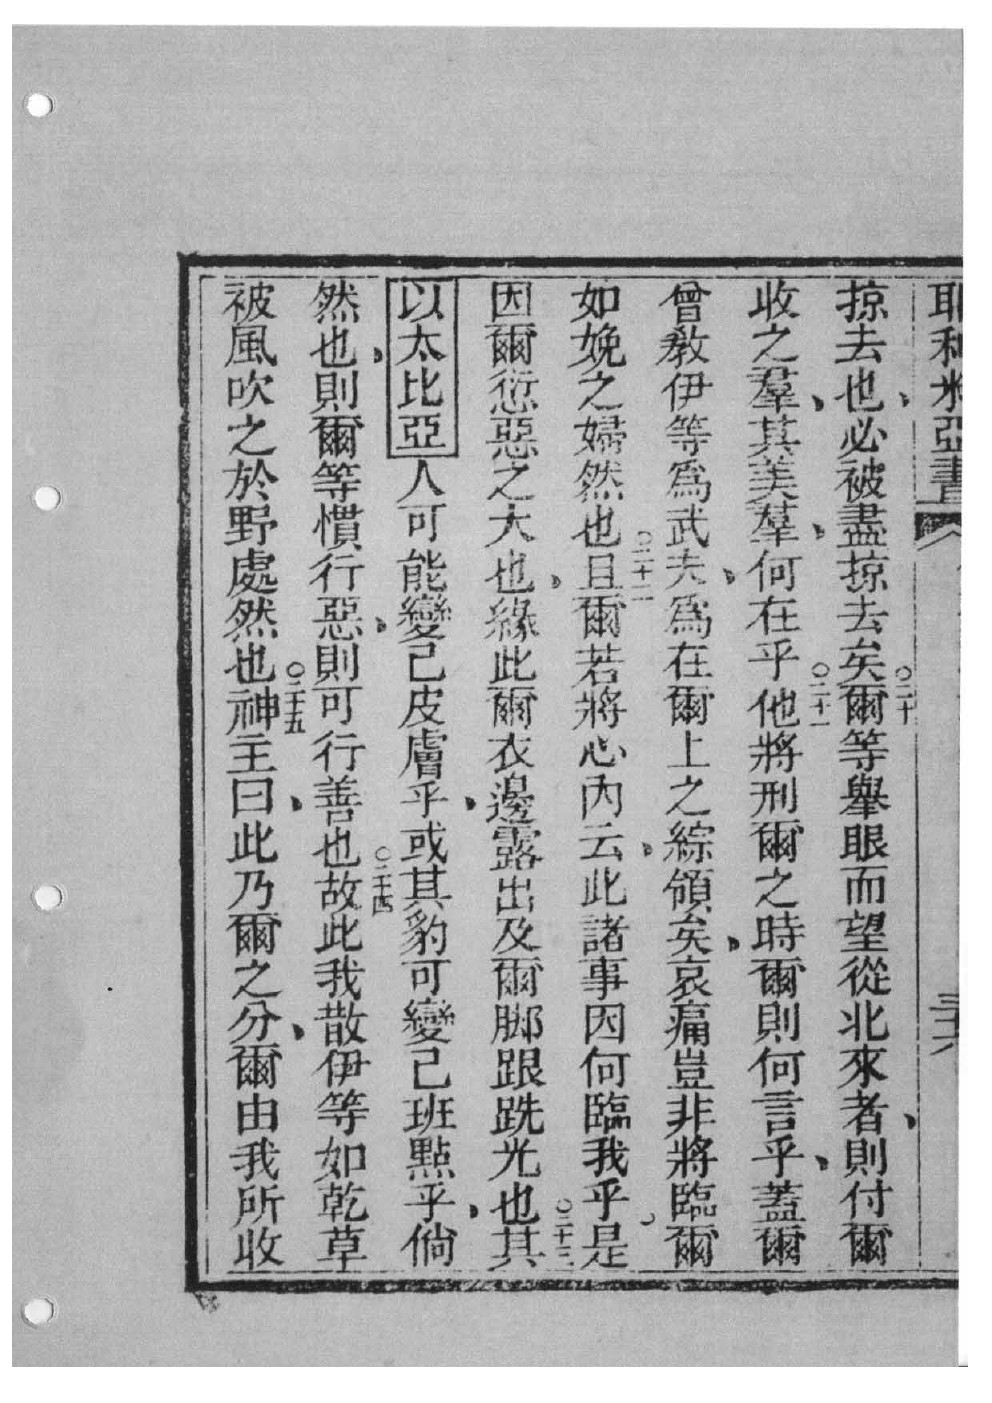 耶利米亞書
三十六
掠去也、必被盡掠去矣○二十爾等舉眼而望從北來者、則付爾
收之羣、其美羣、何在乎○二十一他將刑爾之時爾則何言乎、蓋爾
曾教伊等爲武夫、爲在爾上之綜領矣、哀痛豈非將臨爾
如娩之婦然也○二十二且爾若將心內云、此諸事因何臨我乎、是
因爾愆惡之大也、緣此爾衣邊露出及爾脚跟跣光也○二十三其
以太比亞人可能變己皮膚乎、或其豹可變己班點乎、倘
然也、則爾等慣行惡、則可行善也○二十四故此我散伊等如乾草
被風吹之於野處然也○二十五神主曰、此乃爾之分、爾由我所收